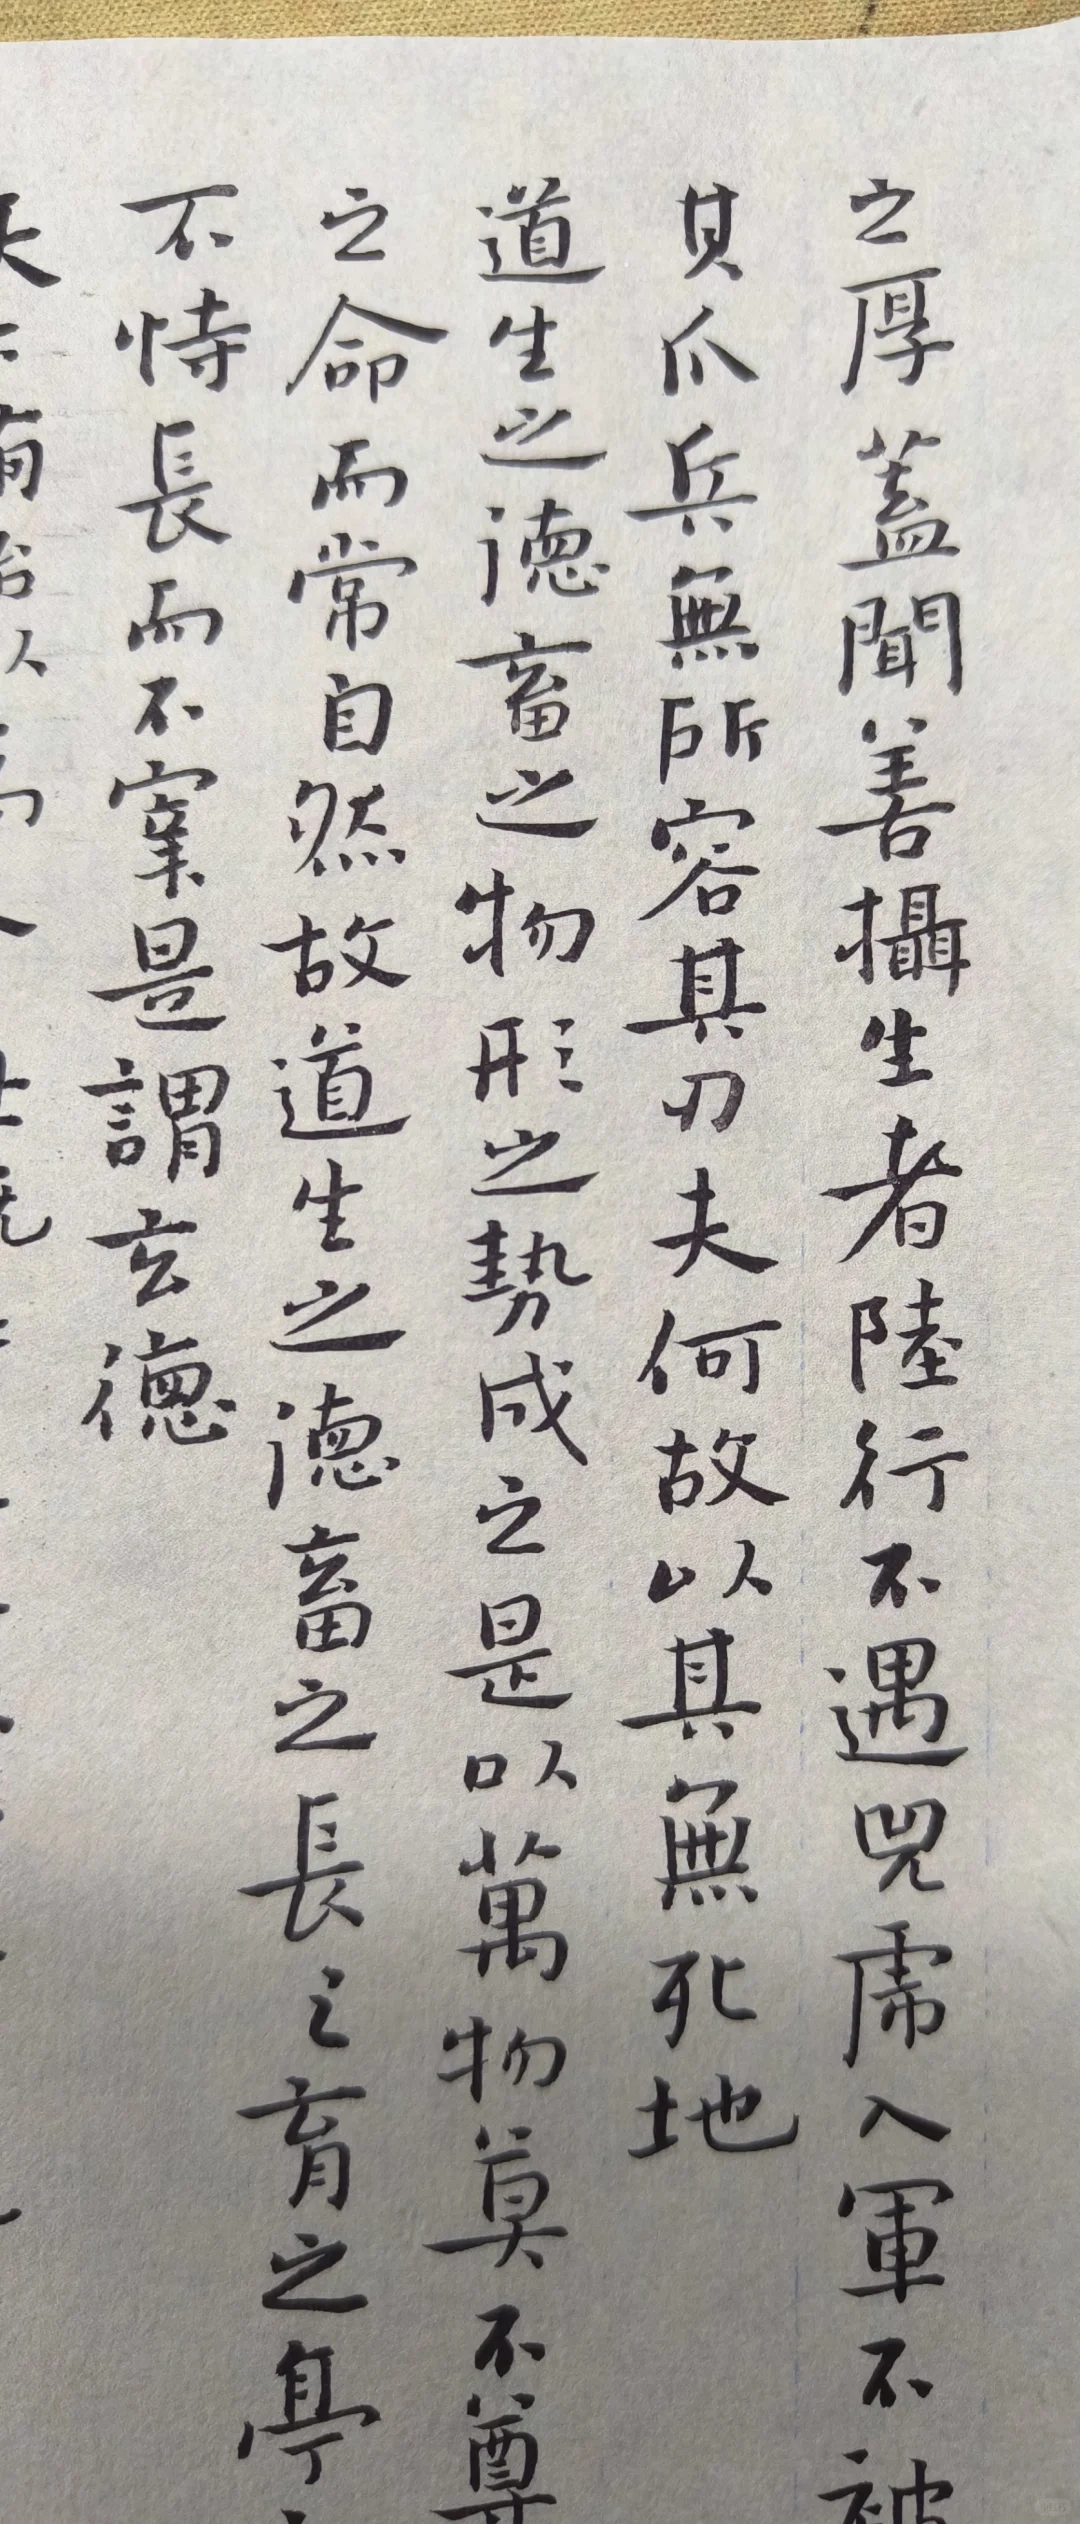 之厚蓋聞善攝生者陸行不遇兕虎入軍不被
其爪兵無所容其刃夫何故以其無死地
道生之德畜之物形之勢成之是以萬物莫不尊
之命而常自然故道生之德畜之長之育之亭
不恃長而不宰是謂玄德